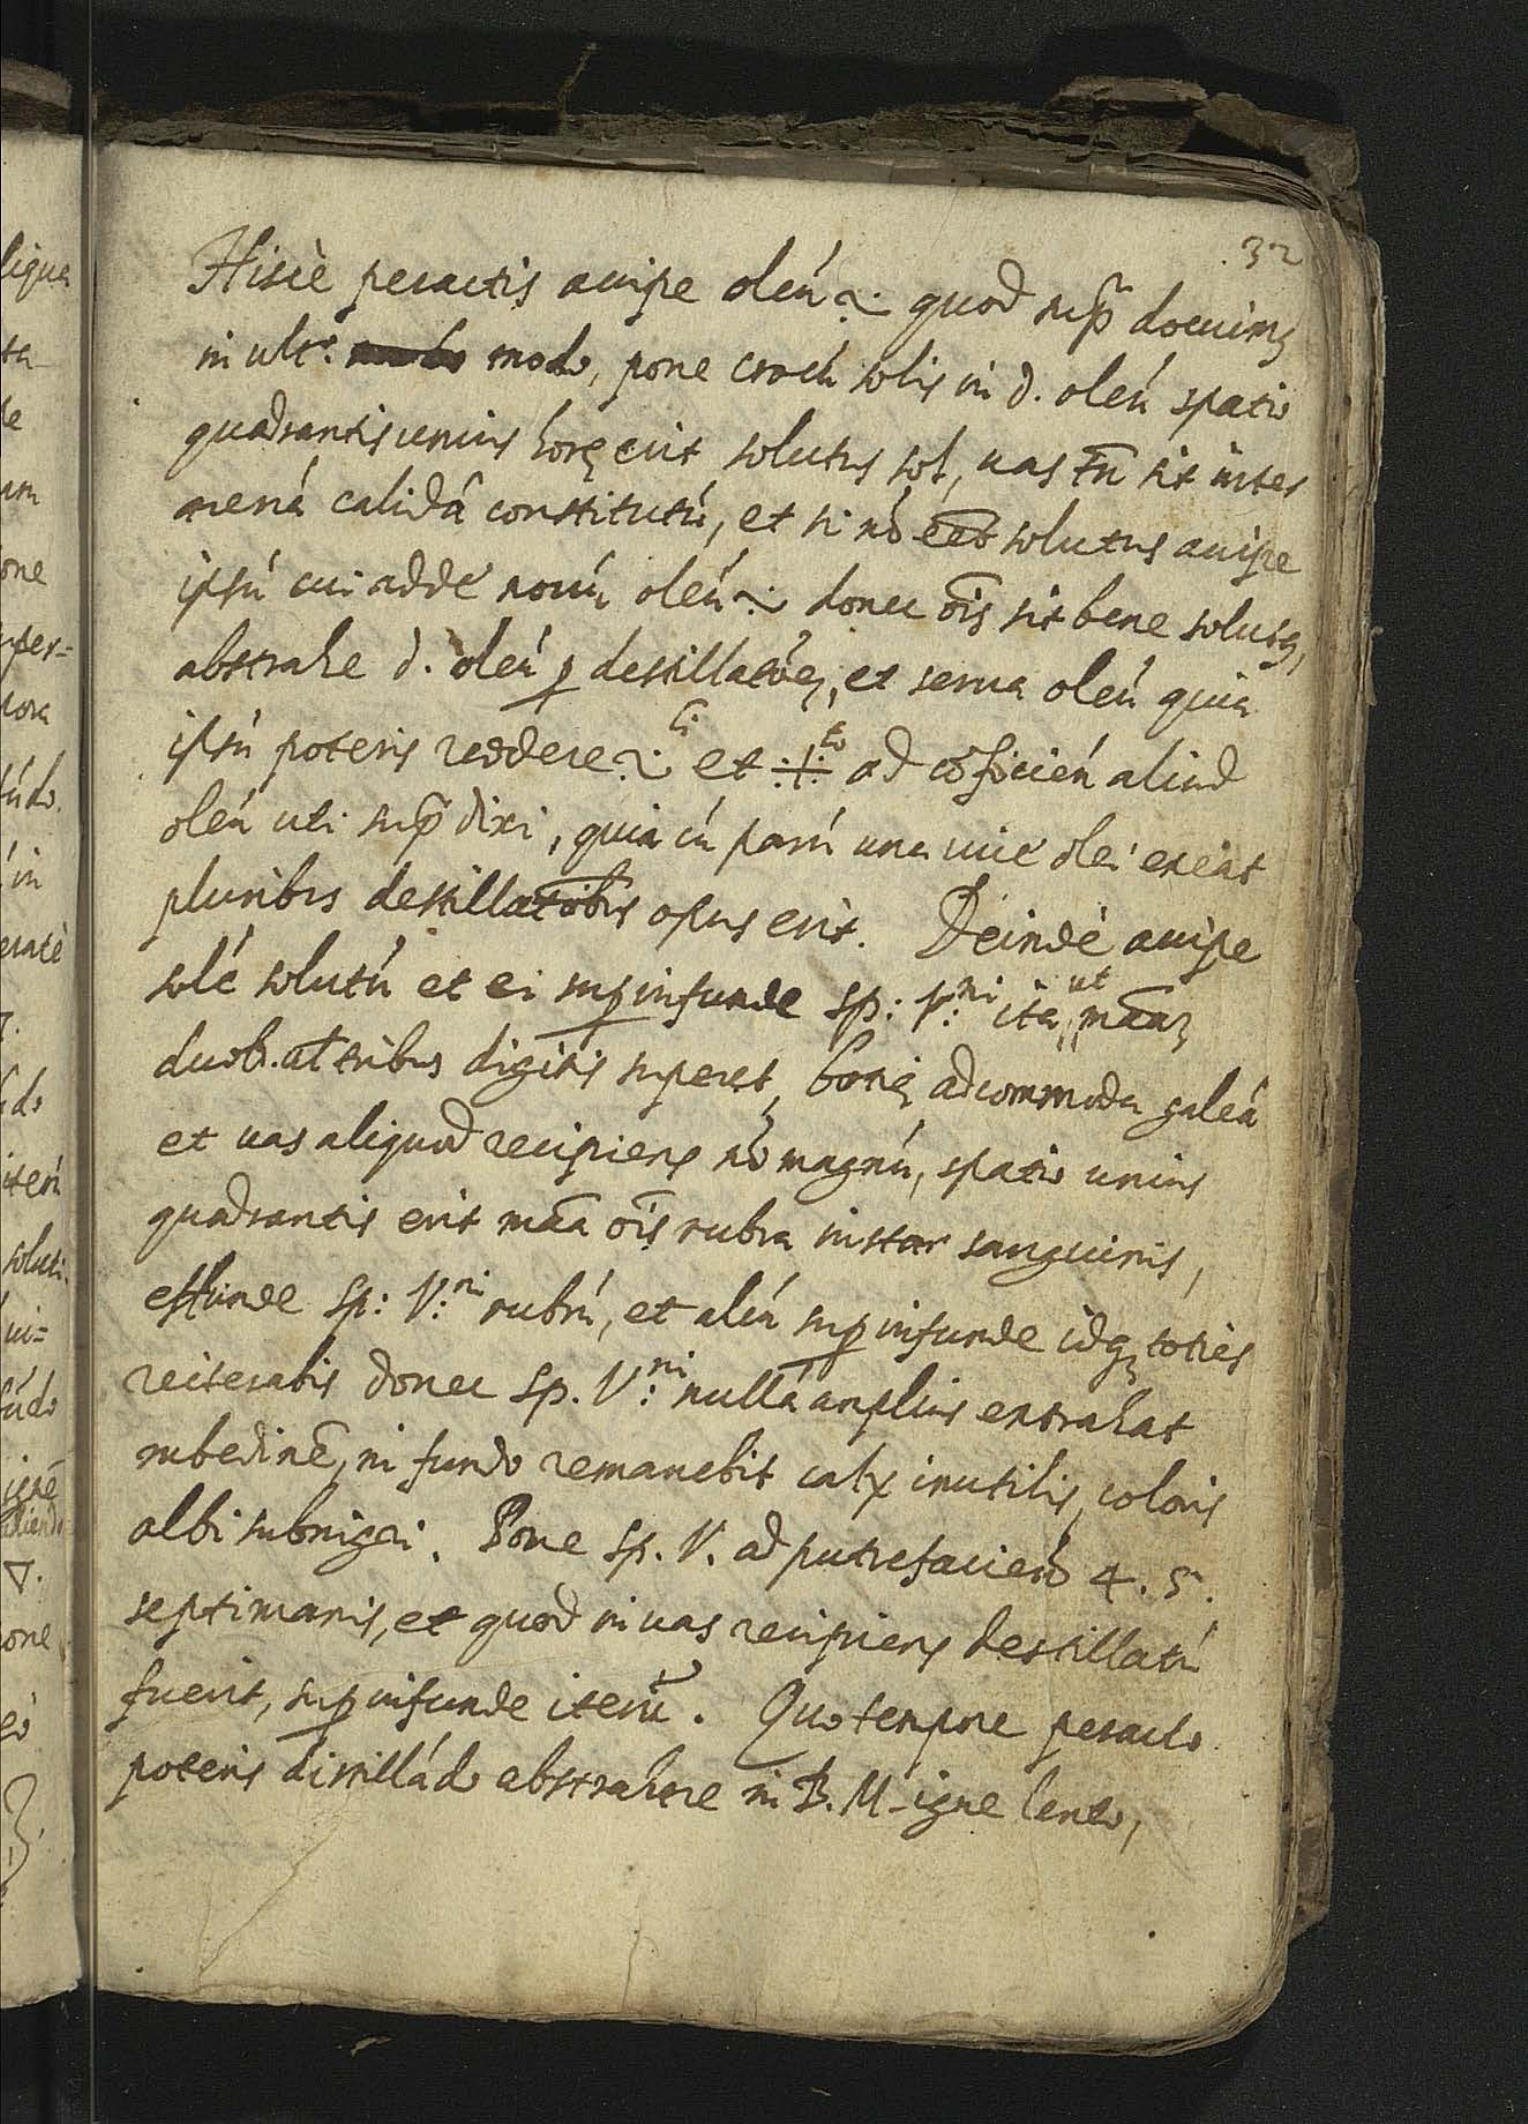 32
Hiscè peractis accipe oleú ~ quod sup̃ docuimꝰ
in ult.º modo, pone crocú solis in d. oleú spatio
quadrantis unius horę erit solutus sol, uas tñ sit inter
arená calidâ constitutú, et si nó eēt solutus accipe
ipsú cui adde nouú oleú ~ donec oīs sit bene solutꝰ,
abstrahe d. oleú ꝑ destillatóeꝫ, et serua oleú quia
ipsú poteris reddere ~ li et ·/· to ad cōficień aliud
oleú uti sup̃ dixi, quia cú parú una uice olei exeat
pluribus destillatōibus opus erit. Deindè accipe
solé solutú et ei suꝑinfunde sp: V:ni ita ut māaꝫ
duob. at tribus digitis superet, bonę adcommoda galeá
et uas aliquod recipiens nó magnú, spatio unius
quadrantis erit māa oīs rubra instar sanguinis,
effunde sp: V:ni rubrú, et aliú suꝑinfunde idqꝫ toties
reiterabis donec sp. V:ni nullá amplius extrahat
rubediné, in fundo remanebit calx inutilis, coloris
albi subnigri. Pone sp. V. ad putrefacień 4. 5.
septimanis, et quod in uas recipiens destillatú
fuerit, suꝑinfunde iterū. Quo tempore peracto
poteris distillādo abstrahere in B. M. igne lento,